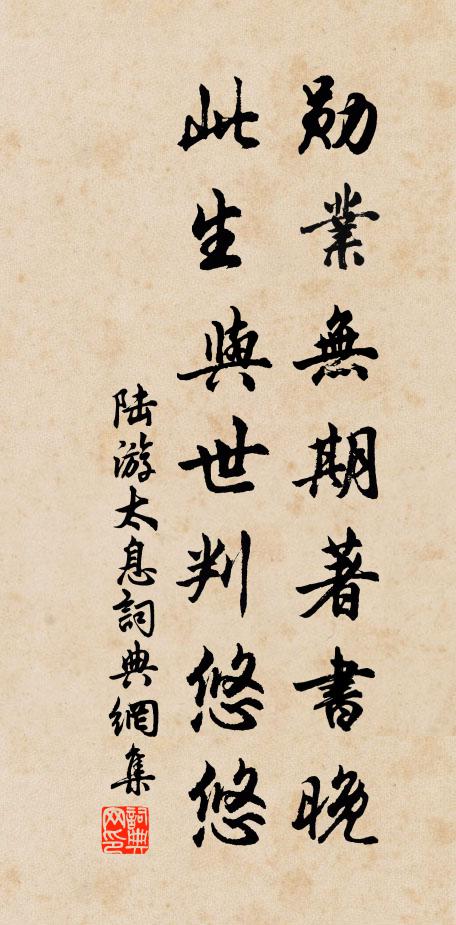 勛業無期著書晚
此生與世判悠悠
陆游太息詞典網集
詞典网印